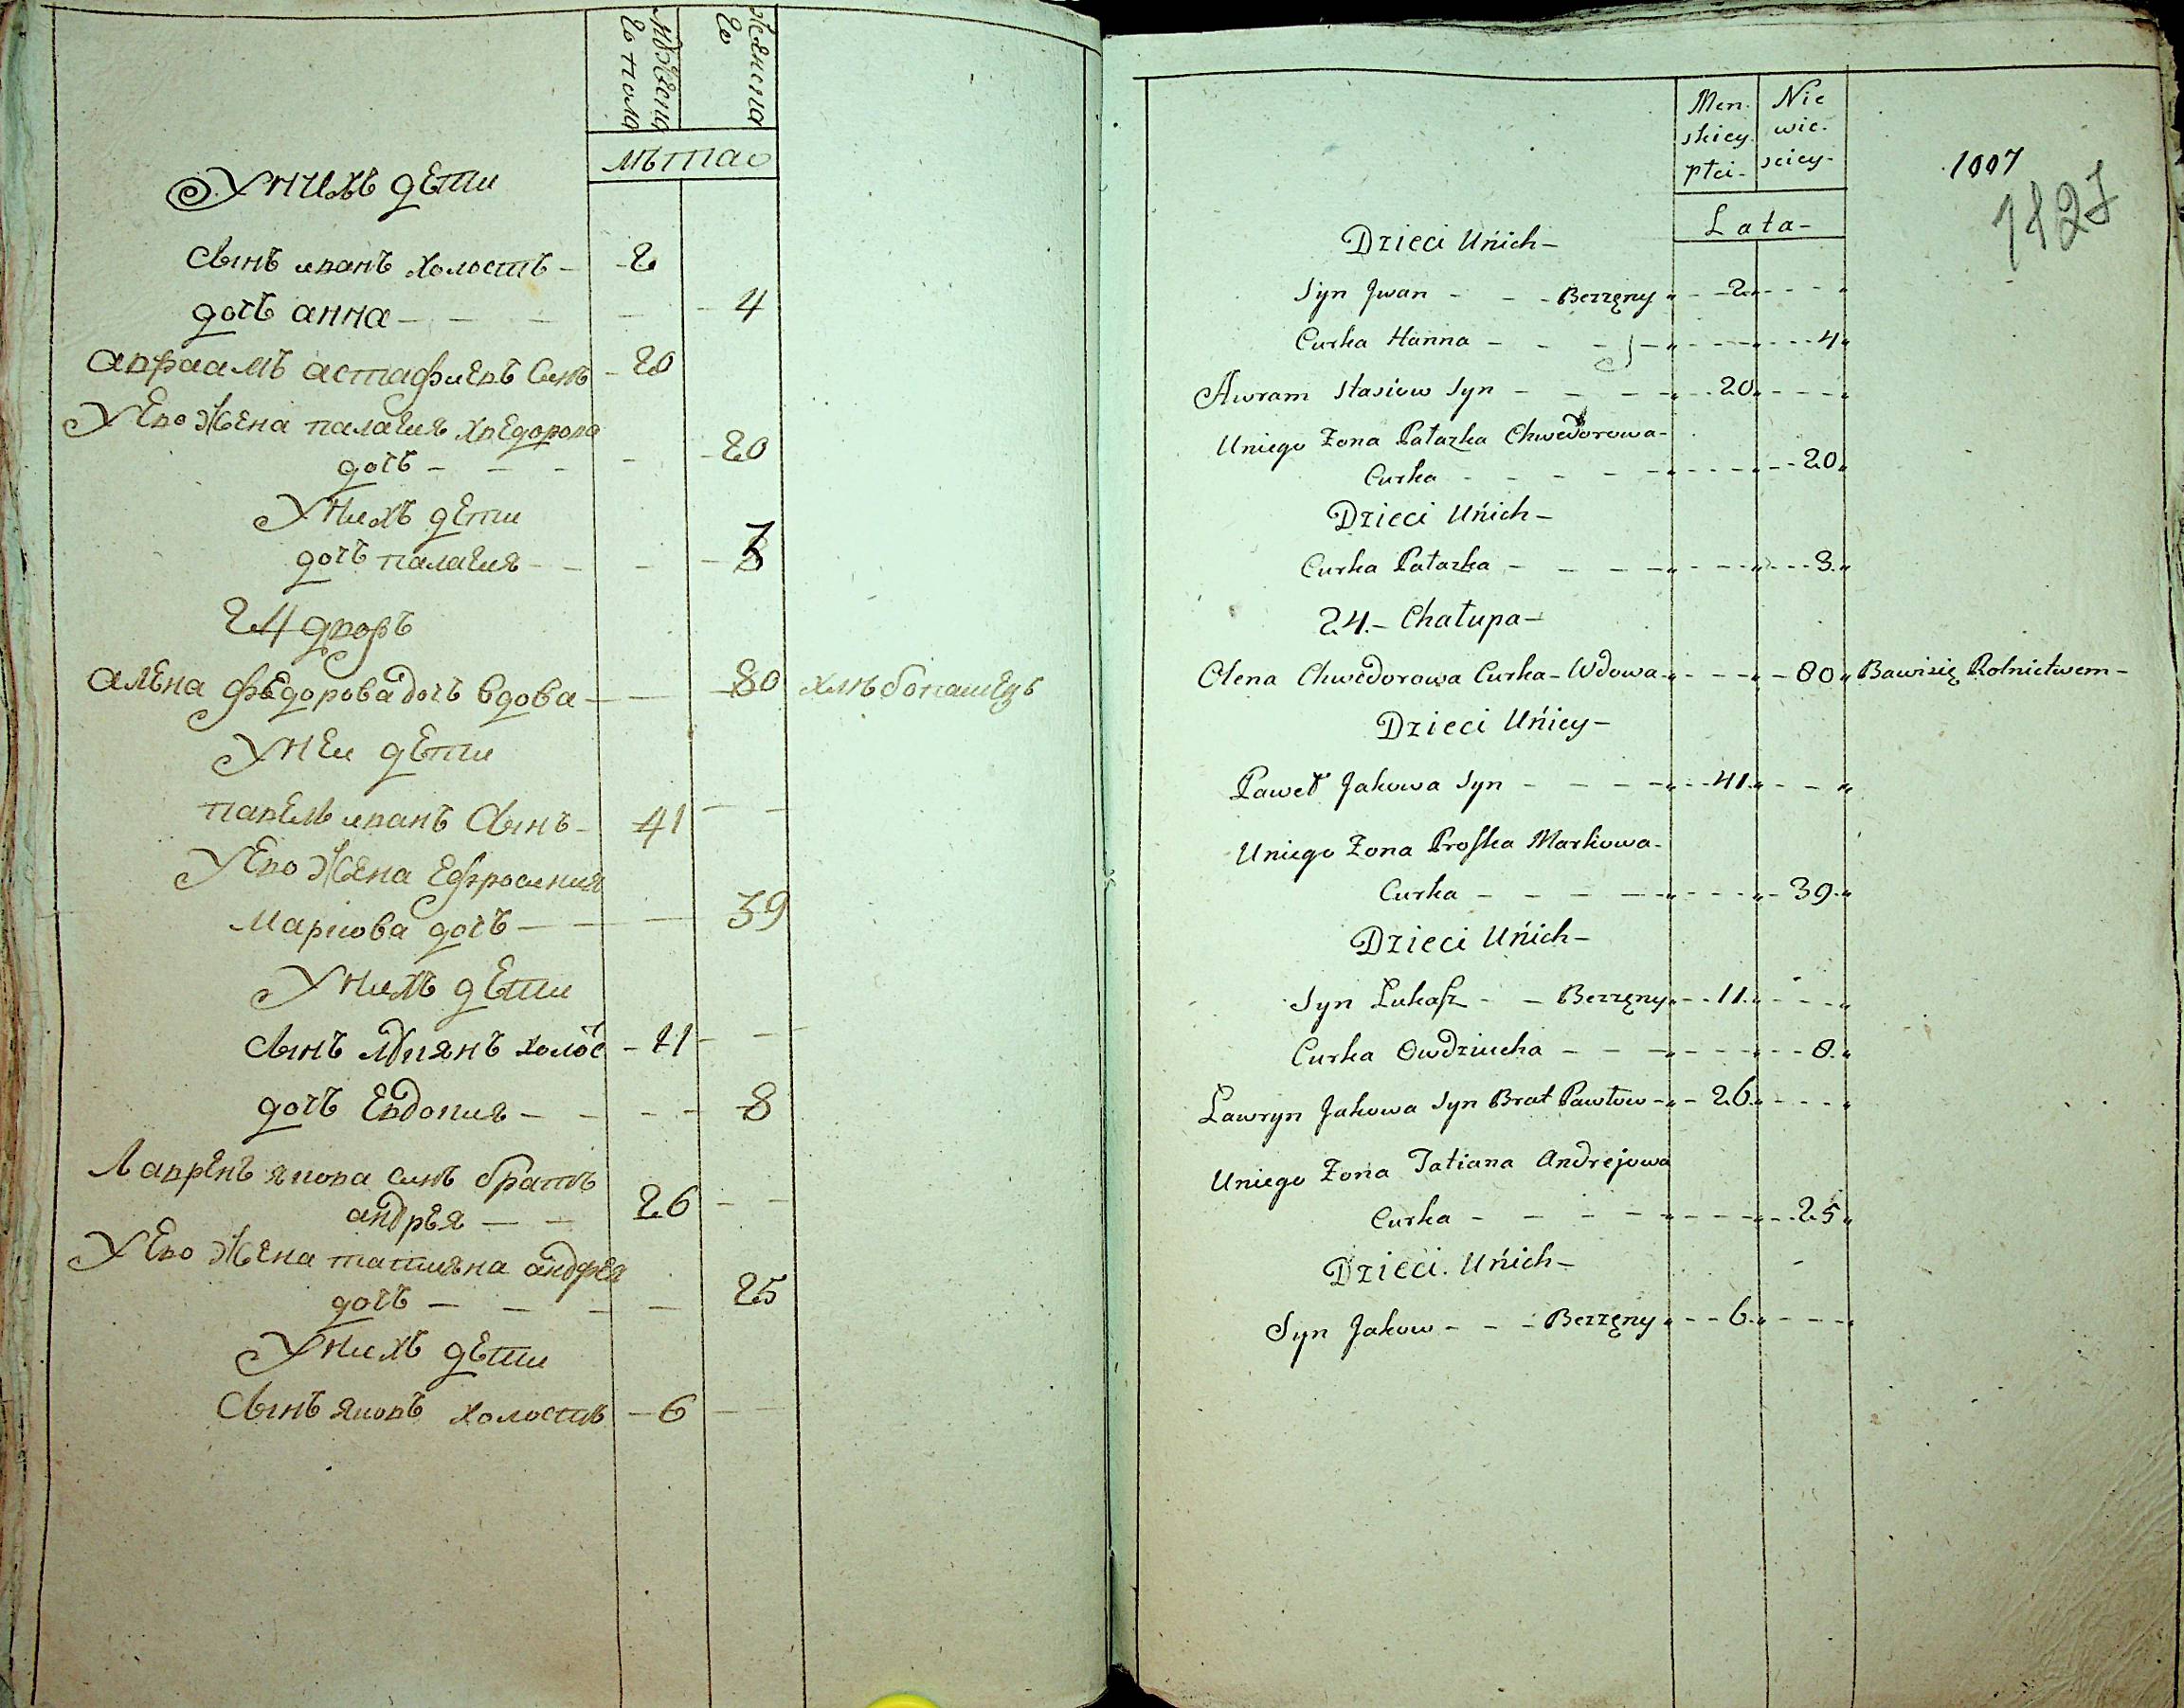 Мужеска
го пола
Женска
го
лѣта
У нихъ дети
Сынъ иванъ холостъ - 2
дочь анна - - - - 4
авраамъ астафиевъ сынъ - 20
У Ево Жена палагия хведорова
дочь - - - - 20
У нихъ дети
дочь палагия - - - - 3
24 дворъ
алена федорова дочь вдова - - 80 хлѣбопашецъ
У ней дети
павелъ иванъ Сынъ - 41 - -
У Ево Жена Ефросиния
Маркова дочь - - - 39
У нихъ дети
Сынъ лукянъ холос - 11 - -
дочь Евдокия - - - - 8
Лаврѣнъ якова сынъ братъ
андрѣя - - 26 - -
У Ево Жена татияна андрея
дочь - - - - 25
У нихъ дети
Сынъ яковъ холостъ - 6 -
Men.
skiey
płci -
Nie
wie.
sciey -
Lata -
1007
1827
Dzieci Unich -
Syn Jwan - - - Bezzęny - - 2 - - -
Curka Hanna - - - - - - 4
Awram Stasiow Syn - - - - 20 - - -
Uniego Zona Pałazka Chwedorowa -
Curka - - - - - - - 20
Dzieci Unich -
Curka Pałazka - - - - - - 3
24. - Chałupa -
Olena Chwedorowa Curka - Wdowa - - - - 80 Bawisię Rolnictwem -
Dzieci Uniey -
Paweł Jakowa Syn - - - - 41 - - -
Uniego Zona Proska Markowa -
Curka - - - - - - - 39
Dzieci Unich -
Syn Łukasz - - Bezzęny - - 11 - - -
Curka Owdziucha - - - - - - 8
Ławryn Jakowa Syn Brat Pawłow - - 26 - - -
Uniego Zona Tatiana Andrejowa
Curka - - - - - - - 25
Dzieci Unich -
Syn Jakow - - - Bezzęny - - 6 - - -